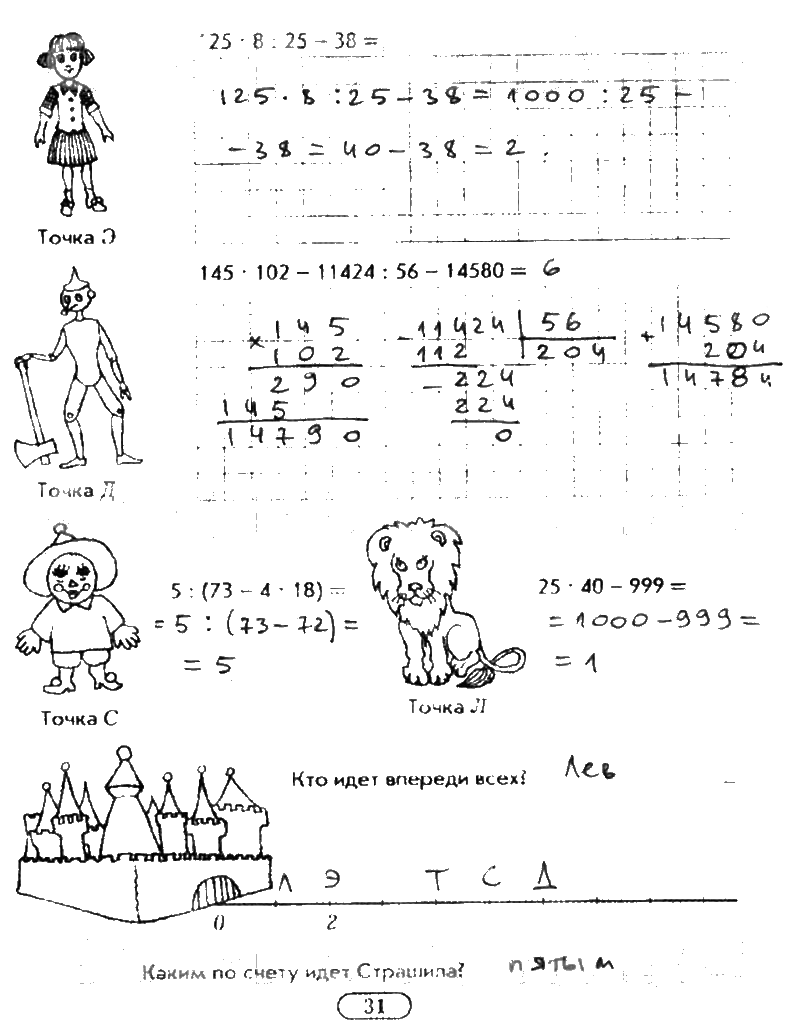 125 · 8 : 25 – 38 =
125 · 8 : 25 – 38 = 1000 : 25 –
– 38 = 40 – 38 = 2 .
Точка Э
145 · 102 – 11424 : 56 – 14580 = 6
× 145
102
290
145
14790
– 11424 | 56
112 | 204
– 224
224
0
+ 14580
204
14784
Точка Д
5 : (73 – 4 · 18) =
= 5 : (73 – 72) =
= 5
Точка С
25 · 40 – 999 =
= 1000 – 999 =
= 1
Точка Л
Кто идет впереди всех? Лев
Л Э Т С Д
0 2
Каким по счету идет Страшила? пятым
31